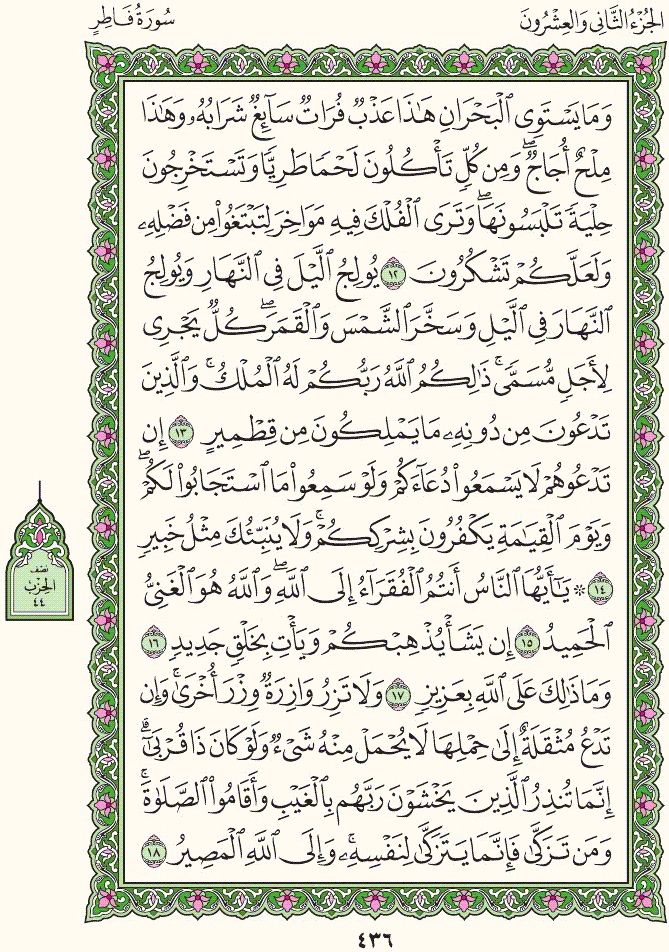 الجُزْءُ الثَّانِي وَالعِشْرُونَ
سُورَةُ فَاطِرٍ
وَمَا يَسْتَوِى ٱلْبَحْرَانِ هَٰذَا عَذْبٌ فُرَاتٌ سَآئِغٌ شَرَابُهُۥ وَهَٰذَا
مِلْحٌ أُجَاجٌ ۖ وَمِن كُلٍّ تَأْكُلُونَ لَحْمًا طَرِيًّا وَتَسْتَخْرِجُونَ
حِلْيَةً تَلْبَسُونَهَا ۖ وَتَرَى ٱلْفُلْكَ فِيهِ مَوَاخِرَ لِتَبْتَغُوا۟ مِن فَضْلِهِۦ
وَلَعَلَّكُمْ تَشْكُرُونَ ١٢ يُولِجُ ٱلَّيْلَ فِى ٱلنَّهَارِ وَيُولِجُ
ٱلنَّهَارَ فِى ٱلَّيْلِ وَسَخَّرَ ٱلشَّمْسَ وَٱلْقَمَرَ ۖ كُلٌّ يَجْرِى
لِأَجَلٍ مُّسَمًّى ۚ ذَٰلِكُمُ ٱللَّهُ رَبُّكُمْ لَهُ ٱلْمُلْكُ ۚ وَٱلَّذِينَ
تَدْعُونَ مِن دُونِهِۦ مَا يَمْلِكُونَ مِن قِطْمِيرٍ ١٣ إِن
تَدْعُوهُمْ لَا يَسْمَعُوا۟ دُعَآءَكُمْ وَلَوْ سَمِعُوا۟ مَا ٱسْتَجَابُوا۟ لَكُمْ ۖ
وَيَوْمَ ٱلْقِيَٰمَةِ يَكْفُرُونَ بِشِرْكِكُمْ ۚ وَلَا يُنَبِّئُكَ مِثْلُ خَبِيرٍ
١٤ ۞ يَٰٓأَيُّهَا ٱلنَّاسُ أَنتُمُ ٱلْفُقَرَآءُ إِلَى ٱللَّهِ ۖ وَٱللَّهُ هُوَ ٱلْغَنِىُّ
ٱلْحَمِيدُ ١٥ إِن يَشَأْ يُذْهِبْكُمْ وَيَأْتِ بِخَلْقٍ جَدِيدٍ ١٦
وَمَا ذَٰلِكَ عَلَى ٱللَّهِ بِعَزِيزٍ ١٧ وَلَا تَزِرُ وَازِرَةٌ وِزْرَ أُخْرَىٰ ۚ وَإِن
تَدْعُ مُثْقَلَةٌ إِلَىٰ حِمْلِهَا لَا يُحْمَلْ مِنْهُ شَىْءٌ وَلَوْ كَانَ ذَا قُرْبَىٰٓ ۗ
إِنَّمَا تُنذِرُ ٱلَّذِينَ يَخْشَوْنَ رَبَّهُم بِٱلْغَيْبِ وَأَقَامُوا۟ ٱلصَّلَوٰةَ ۚ
وَمَن تَزَكَّىٰ فَإِنَّمَا يَتَزَكَّىٰ لِنَفْسِهِۦ ۚ وَإِلَى ٱللَّهِ ٱلْمَصِيرُ ١٨
نصف
الحزب
٤٤
٤٣٦